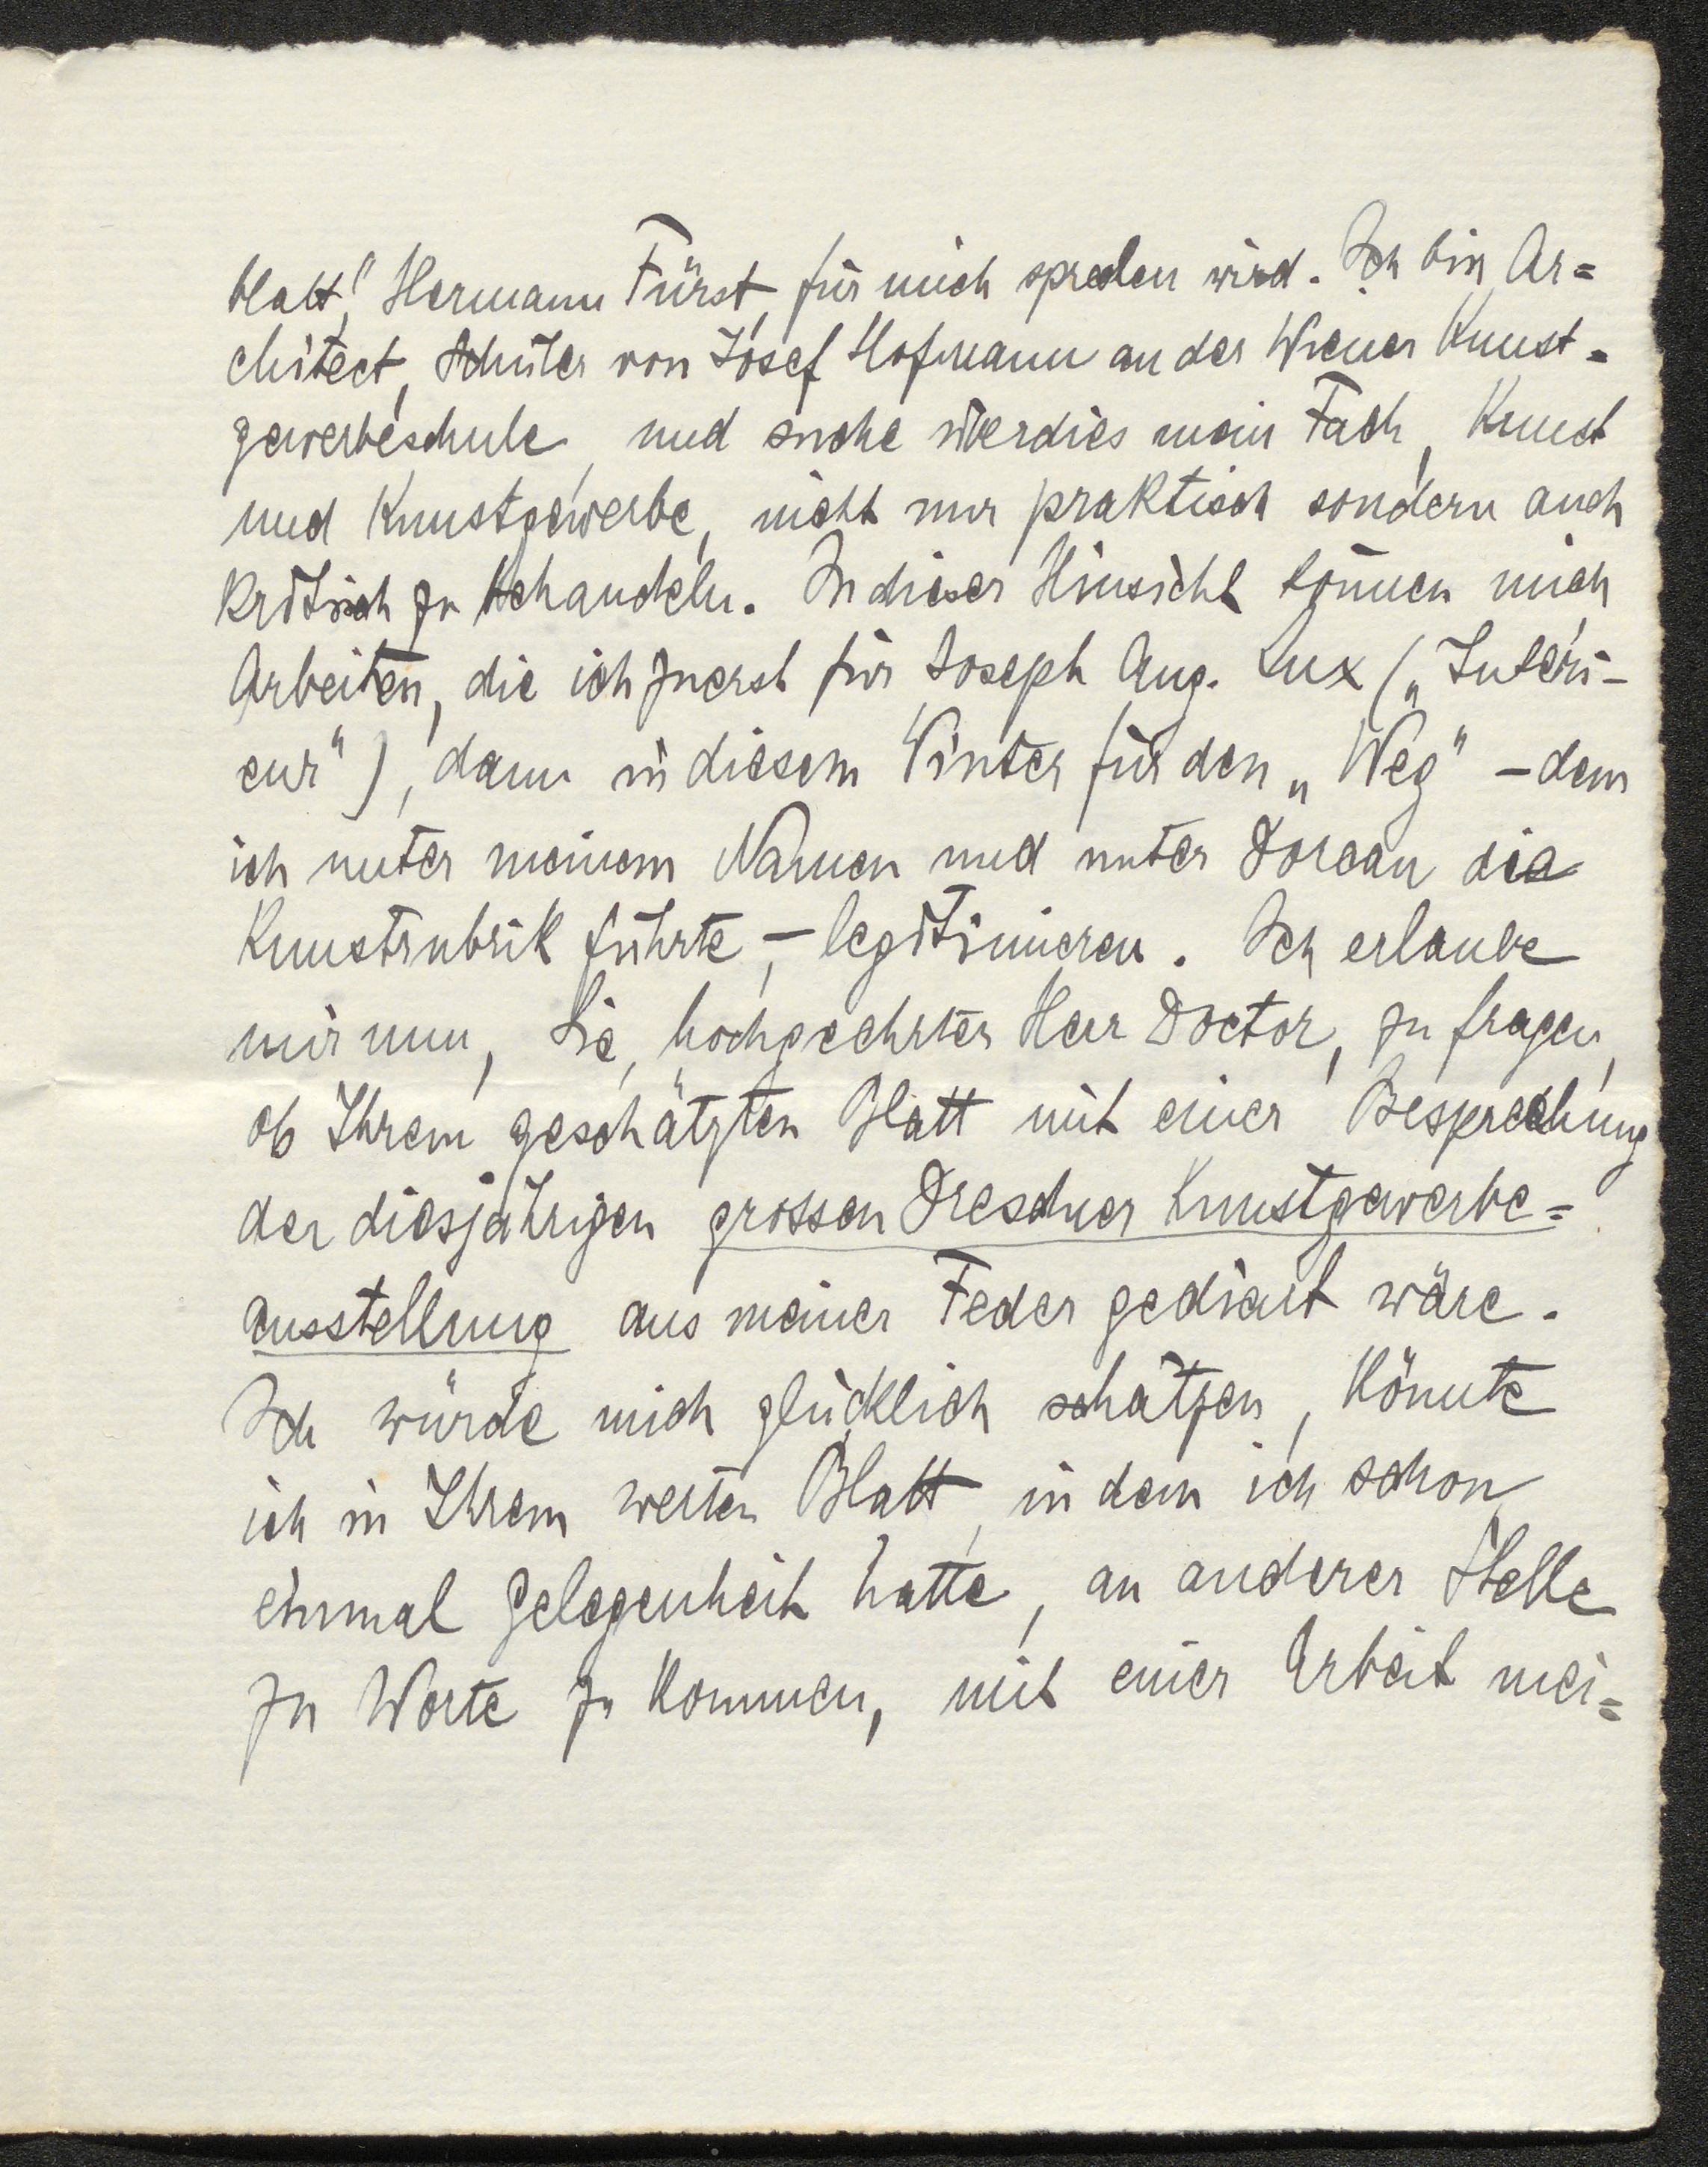 blatt", Hermann Fürst, für mich sprechen wird. Ich bin Ar=
chitect, Schüler von Josef Hofmann an der Wiener Kunst=
gewerbeschule, und suche überdies mein Fach, Kunst
und Kunstgewerbe, nicht nur praktisch sondern auch
kritisch zu behandeln. In dieser Hinsicht können mich
Arbeiten, die ich zuerst für Joseph Aug. Lux („Interi-
eur"), dann in diesem Winter für den „Weg" – dem
ich unter meinem Namen und unter Dorean die
Kunstrubrik führte, – legitimieren. Ich erlaube
mir nun, Sie, hochgeehrter Herr Doctor, zu fragen,
ob Ihrem geschätzten Blatt mit einer Besprechung
der diesjährigen grossen Dresdner Kunstgewerbe=
ausstellung aus meiner Feder gedient wäre.
Ich würde mich glücklich schätzen, könnte
ich in Ihrem werten Blatt, in dem ich schon
einmal Gelegenheit hatte, an anderer Stelle
zu Worte zu kommen, mit einer Arbeit mei=